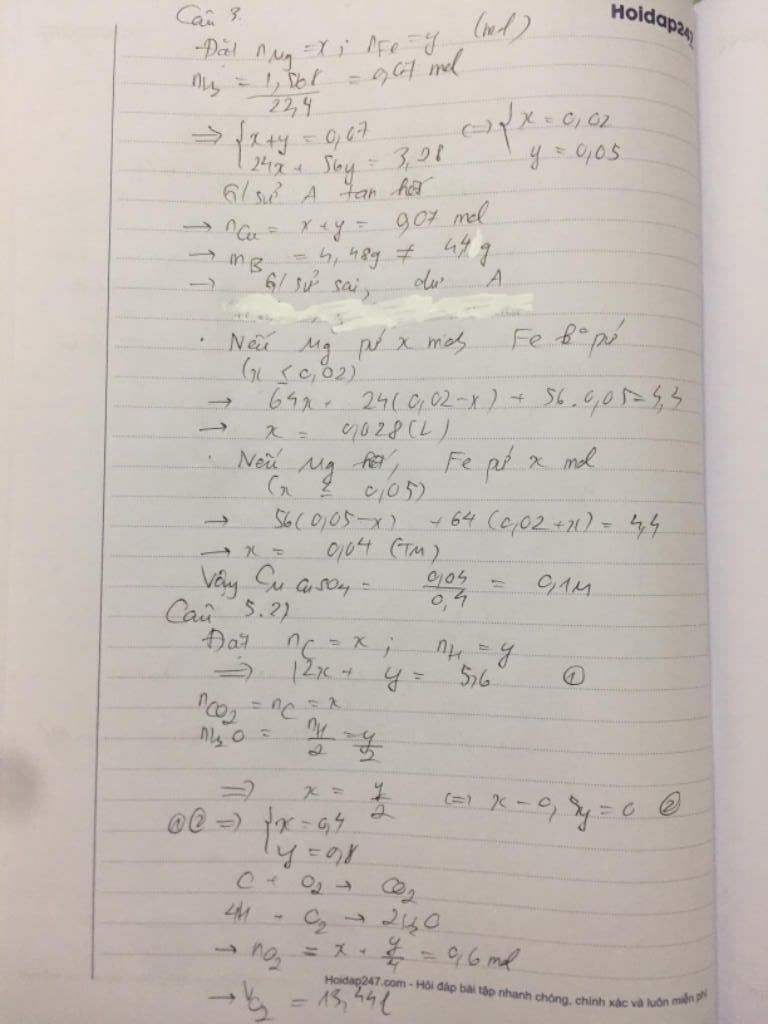 Câu 3.
Hoidap247
Đặt nMg = x ; nFe = y (mol)
nH2 = 1,568 / 22,4 = 0,07 mol
=> { x+y = 0,07 <=> { x = 0,02
24x + 56y = 3,28 y = 0,05
G/sử A tan hết
→ nCu = x+y = 0,07 mol
→ mB = 4,48g ≠ 4,4g
→ G/sử sai, dư A
· Nếu Mg pứ x mol, Fe ko pứ
(x ≤ 0,02)
→ 64x + 24(0,02-x) + 56.0,05 = 4,4
→ x = 0,028 (L)
· Nếu Mg hết, Fe pứ x mol
(x ≤ 0,05)
→ 56(0,05-x) + 64(0,02+x) = 4,4
→ x = 0,04 (TM)
Vậy CM CuSO4 = 0,04 / 0,4 = 0,1M
Câu 5.2)
Đặt nC = x ; nH = y
=> 12x + y = 5,6 ①
nCO2 = nC = x
nH2O = nH/2 = y/2
=> x = y/2 <=> x - 0,5y = 0 ②
①② => { x = 0,4
y = 0,8
C + O2 → CO2
4H + O2 → 2H2O
→ nO2 = x + y/4 = 0,6 mol
Hoidap247.com - Hỏi đáp bài tập nhanh chóng, chính xác và luôn miễn phí
→ VO2 = 13,44l